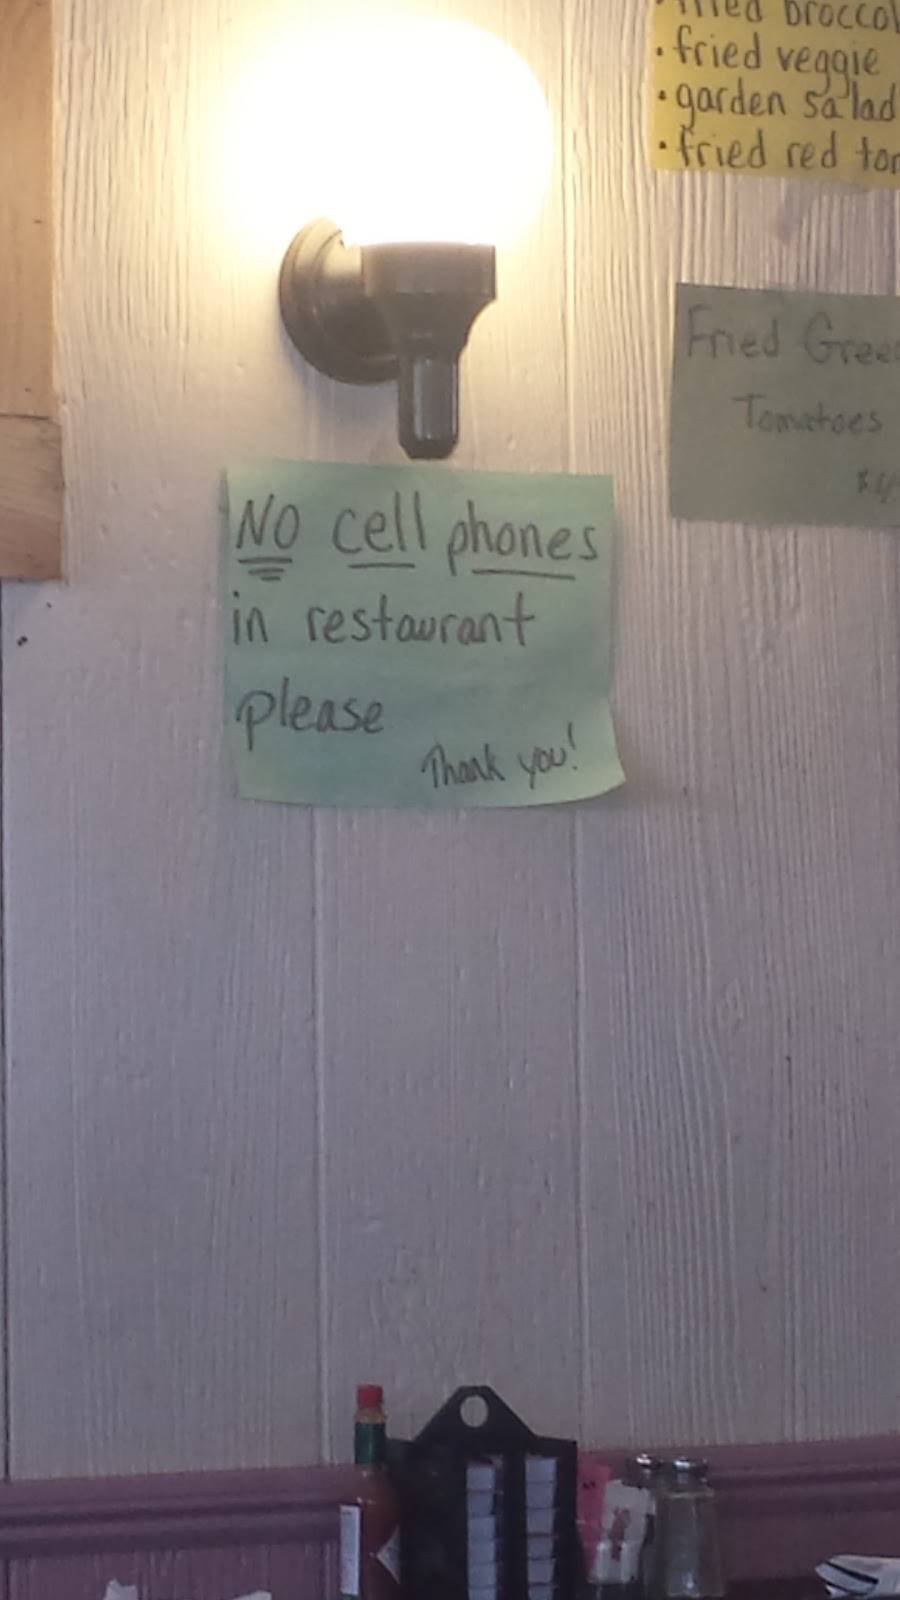 broccol
• fried veggie
• garden salad
• fried red
Fried
Tomatoes
NO cell phones
in restaurant
please
Thank you!